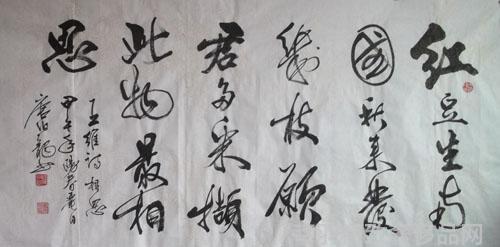 红豆生南
国秋来發
幾枝願
君多采撷
此物最相
思
王维诗相思
甲午年
品网